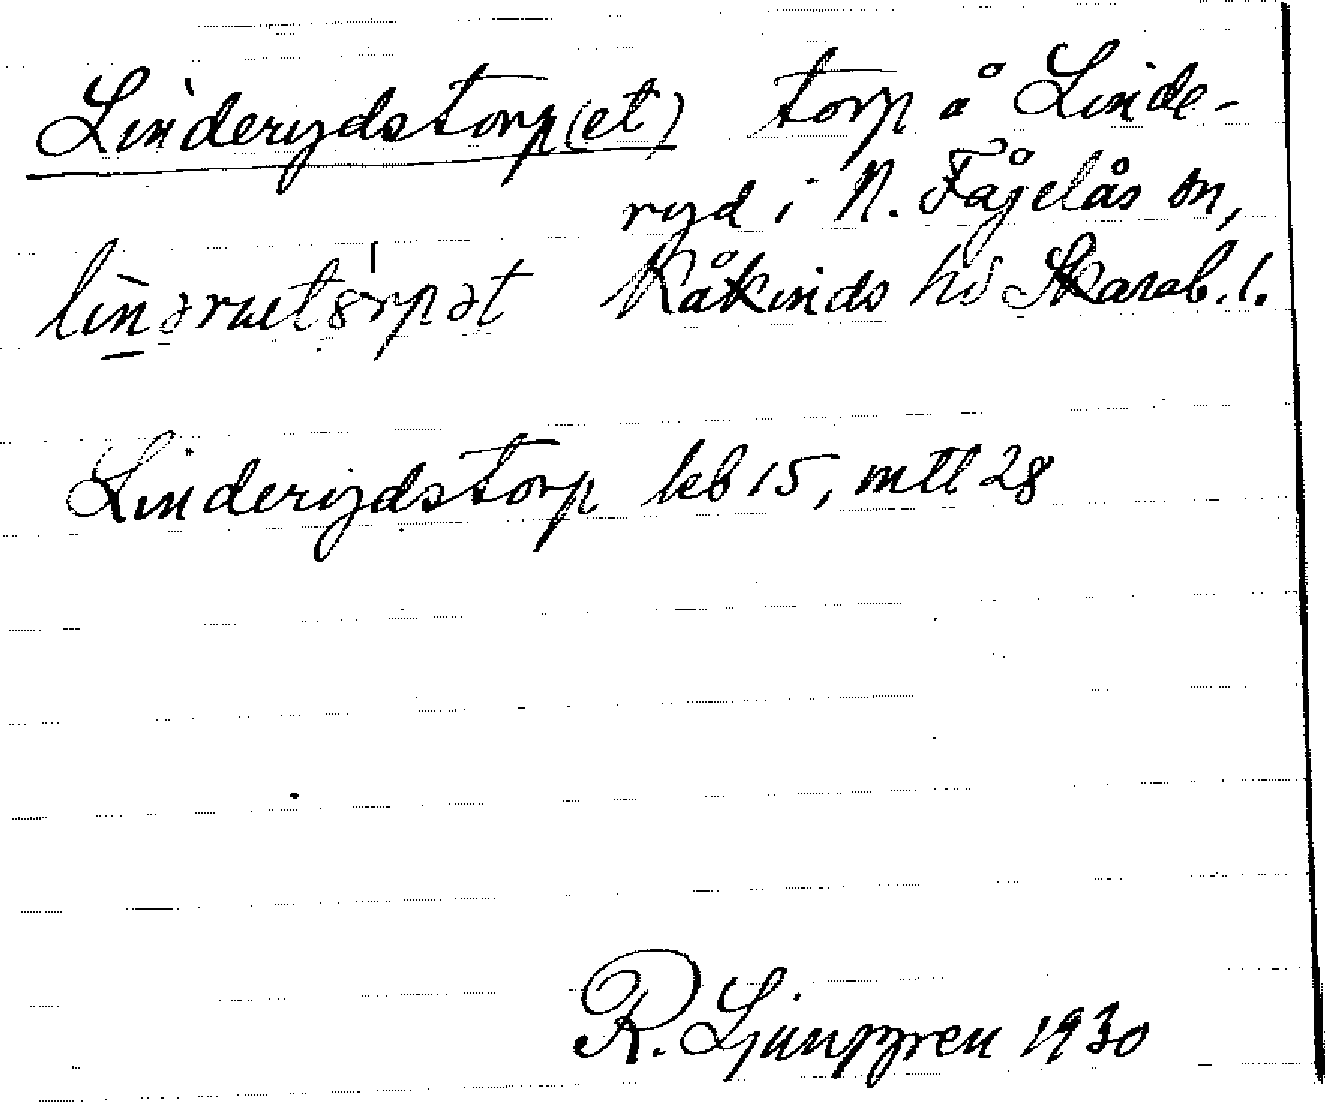 Linderydstorp(et) torp å Linde-
ryd i N. Fågelås sn,
Kåkinds hd Skarab. l.
Linderydstorp kb 15, mtl 28
R. Ljunggren 1930